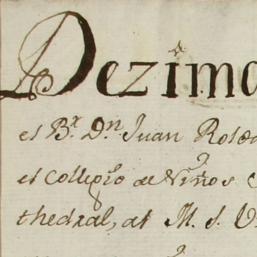 Dezima
el B.r D.n Juan Rosa
el collegio de Niños
thedral, al M. s. V.